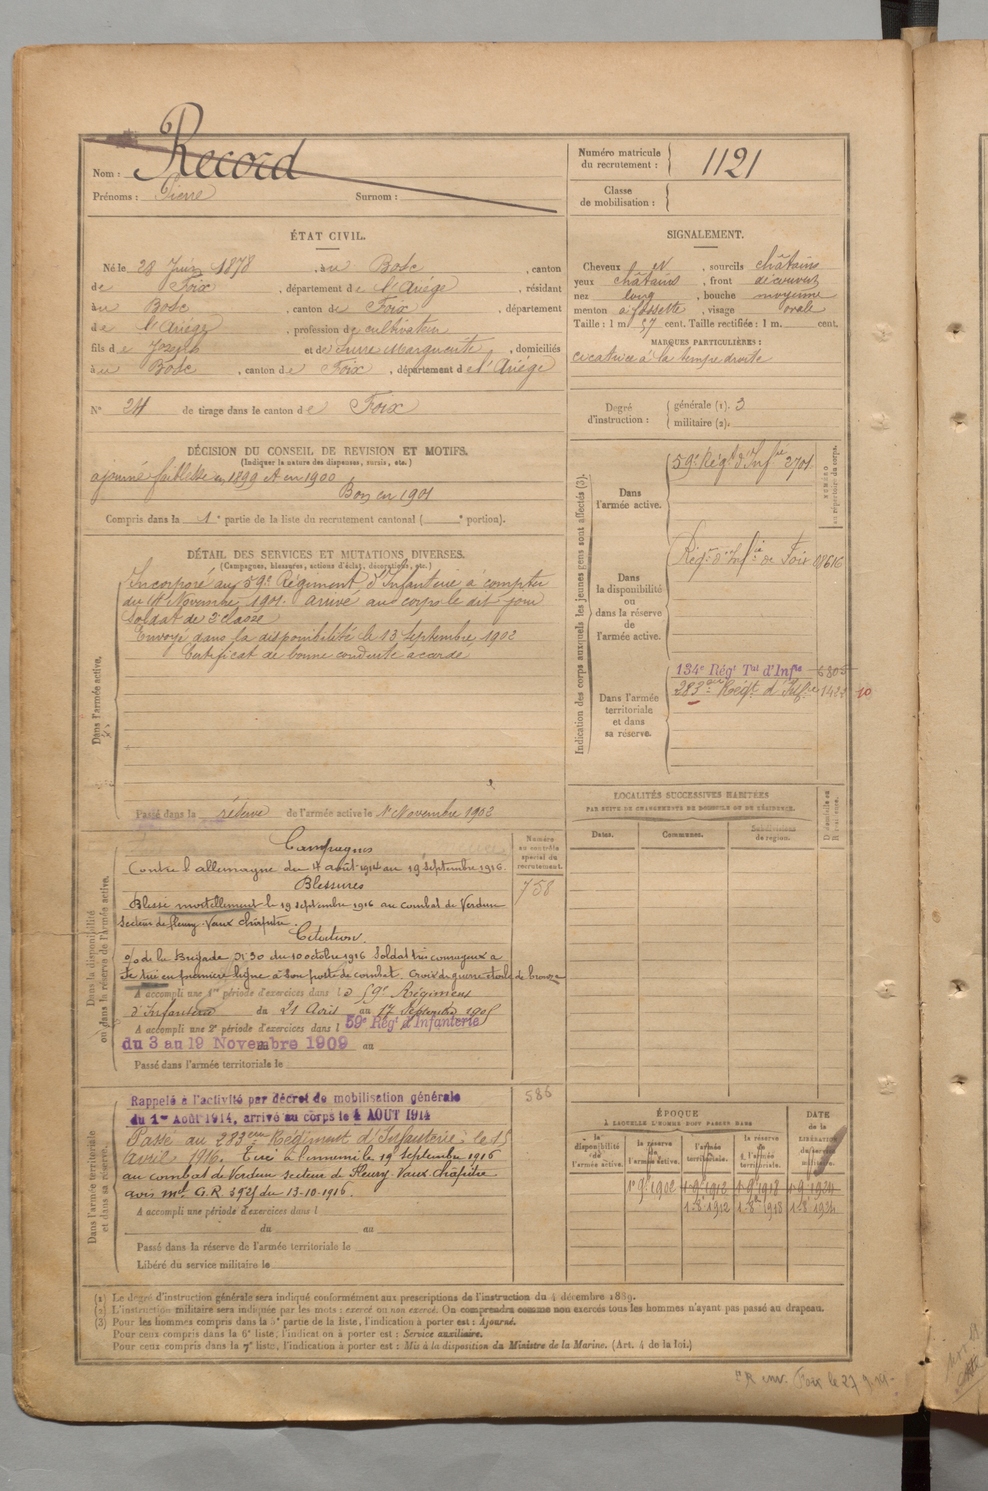 Nom : Record
Prénoms : Pierre Surnom :
Numéro matricule du recrutement : 1121
Classe de mobilisation :
ÉTAT CIVIL.
Né le 28 Juin 1878, à u Bosc, canton
de Foix, département de l'Ariège, résidant
à u Bosc, canton de Foix, département
de l'Ariège, profession de cultivateur
fils de Joseph et de Marguerite, domiciliés
à u Bosc, canton de Foix, département de l'Ariège
N° 24 de tirage dans le canton de Foix
SIGNALEMENT.
Cheveux, sourcils châtains
yeux châtains, front découvert
nez long, bouche moyenne
menton à fossette, visage ovale
Taille : 1 m. 57 cent. Taille rectifiée : 1 m. cent.
MARQUES PARTICULIÈRES :
cicatrice à la tempe droite
Degré d'instruction : générale (1). 3
militaire (2).
DÉCISION DU CONSEIL DE REVISION ET MOTIFS.
(Indiquer la nature des dispenses, sursis, etc.)
ajourné faiblesse en 1899 et en 1900
Bon en 1901
Compris dans la 1e partie de la liste du recrutement cantonal ( e portion).
DÉTAIL DES SERVICES ET MUTATIONS DIVERSES.
(Campagnes, blessures, actions d'éclat, décorations, etc.)
Dans l'armée active.
Incorporé au 59e Régiment d'Infanterie à compter
du Novembre 1901. arrivé au corps le dit jour
Soldat de 2e classe
Envoyé dans la disponibilité le 13 Septembre 1902
Certificat de bonne conduite accordé
Passé dans la réserve de l'armée active le 1er Novembre 1902
Indication des corps auxquels les jeunes gens sont affectés (3).
NUMÉRO au répertoire du corps.
Dans l'armée active.
59e Régt d'Infie 2701
Dans la disponibilité ou dans la réserve de l'armée active.
Régt d'Infie de Foix 01616
Dans l'armée territoriale et dans sa réserve.
134e Régt Tal d'Infie
283me Régt d'Infie 10
LOCALITÉS SUCCESSIVES HABITÉES
PAR SUITE DE CHANGEMENTS DE DOMICILE OU DE RÉSIDENCE.
Dates. Communes. Subdivisions de région.
Dans la disponibilité ou dans la réserve de l'armée active.
Numéro au contrôle spécial du recrutement.
758
Campagnes
Contre l'allemagne du 4 août 1914 au 19 septembre 1916.
Blessures
Blessé mortellement le 19 septembre 1916 au combat de Verdun
secteur de fleury-Vaux Chapitre.
Citation
o/ de la Brigade N 30 du 10 octobre 1916 Soldat très courageux a
été tué en première ligne à son poste de combat. Croix de guerre étoile de bronze
A accompli une 1re période d'exercices dans le 59e Régiment
d'Infanterie du 21 Avril au 17 Septembre 1905
A accompli une 2e période d'exercices dans l 59e Régt d'Infanterie
du 3 au 19 Novembre 1909 au
Passé dans l'armée territoriale le
Dans l'armée territoriale et dans sa réserve.
586
Rappelé à l'activité par décret de mobilisation générale
du 1er Août 1914, arrivé au corps le 4 AOUT 1914
Passé au 283eme Régiment d'Infanterie le 15
avril 1916. Tué à l'ennemi le 19 septembre 1916
au combat de Verdun secteur de Fleury-Vaux-Chapitre
avis mel G.R. 3925 du 13-10-1916.
A accompli une période d'exercices dans l
du au
Passé dans la réserve de l'armée territoriale le
Libéré du service militaire le
ÉPOQUE
À LAQUELLE L'HOMME DOIT PASSER DANS
la disponibilité de l'armée active. la réserve de l'armée active. l'armée territoriale. la réserve de l'armée territoriale.
DATE de la LIBÉRATION du service militaire.
1er 9bre 1902 1-9-1912 1-9-1918 1-9-1924
1-8-1912 1-8-1918 1-8-1924
(1) Le degré d'instruction générale sera indiqué conformément aux prescriptions de l'instruction du 4 décembre 1889.
(2) L'instruction militaire sera indiquée par les mots : exercé ou non exercé. On comprendra comme non exercés tous les hommes n'ayant pas passé au drapeau.
(3) Pour les hommes compris dans la 5e partie de la liste, l'indication à porter est : Ajourné.
Pour ceux compris dans la 6e liste, l'indication à porter est : Service auxiliaire.
Pour ceux compris dans la 7e liste, l'indication à porter est : Mis à la disposition du Ministre de la Marine. (Art. 4 de la loi.)
Foix le 27